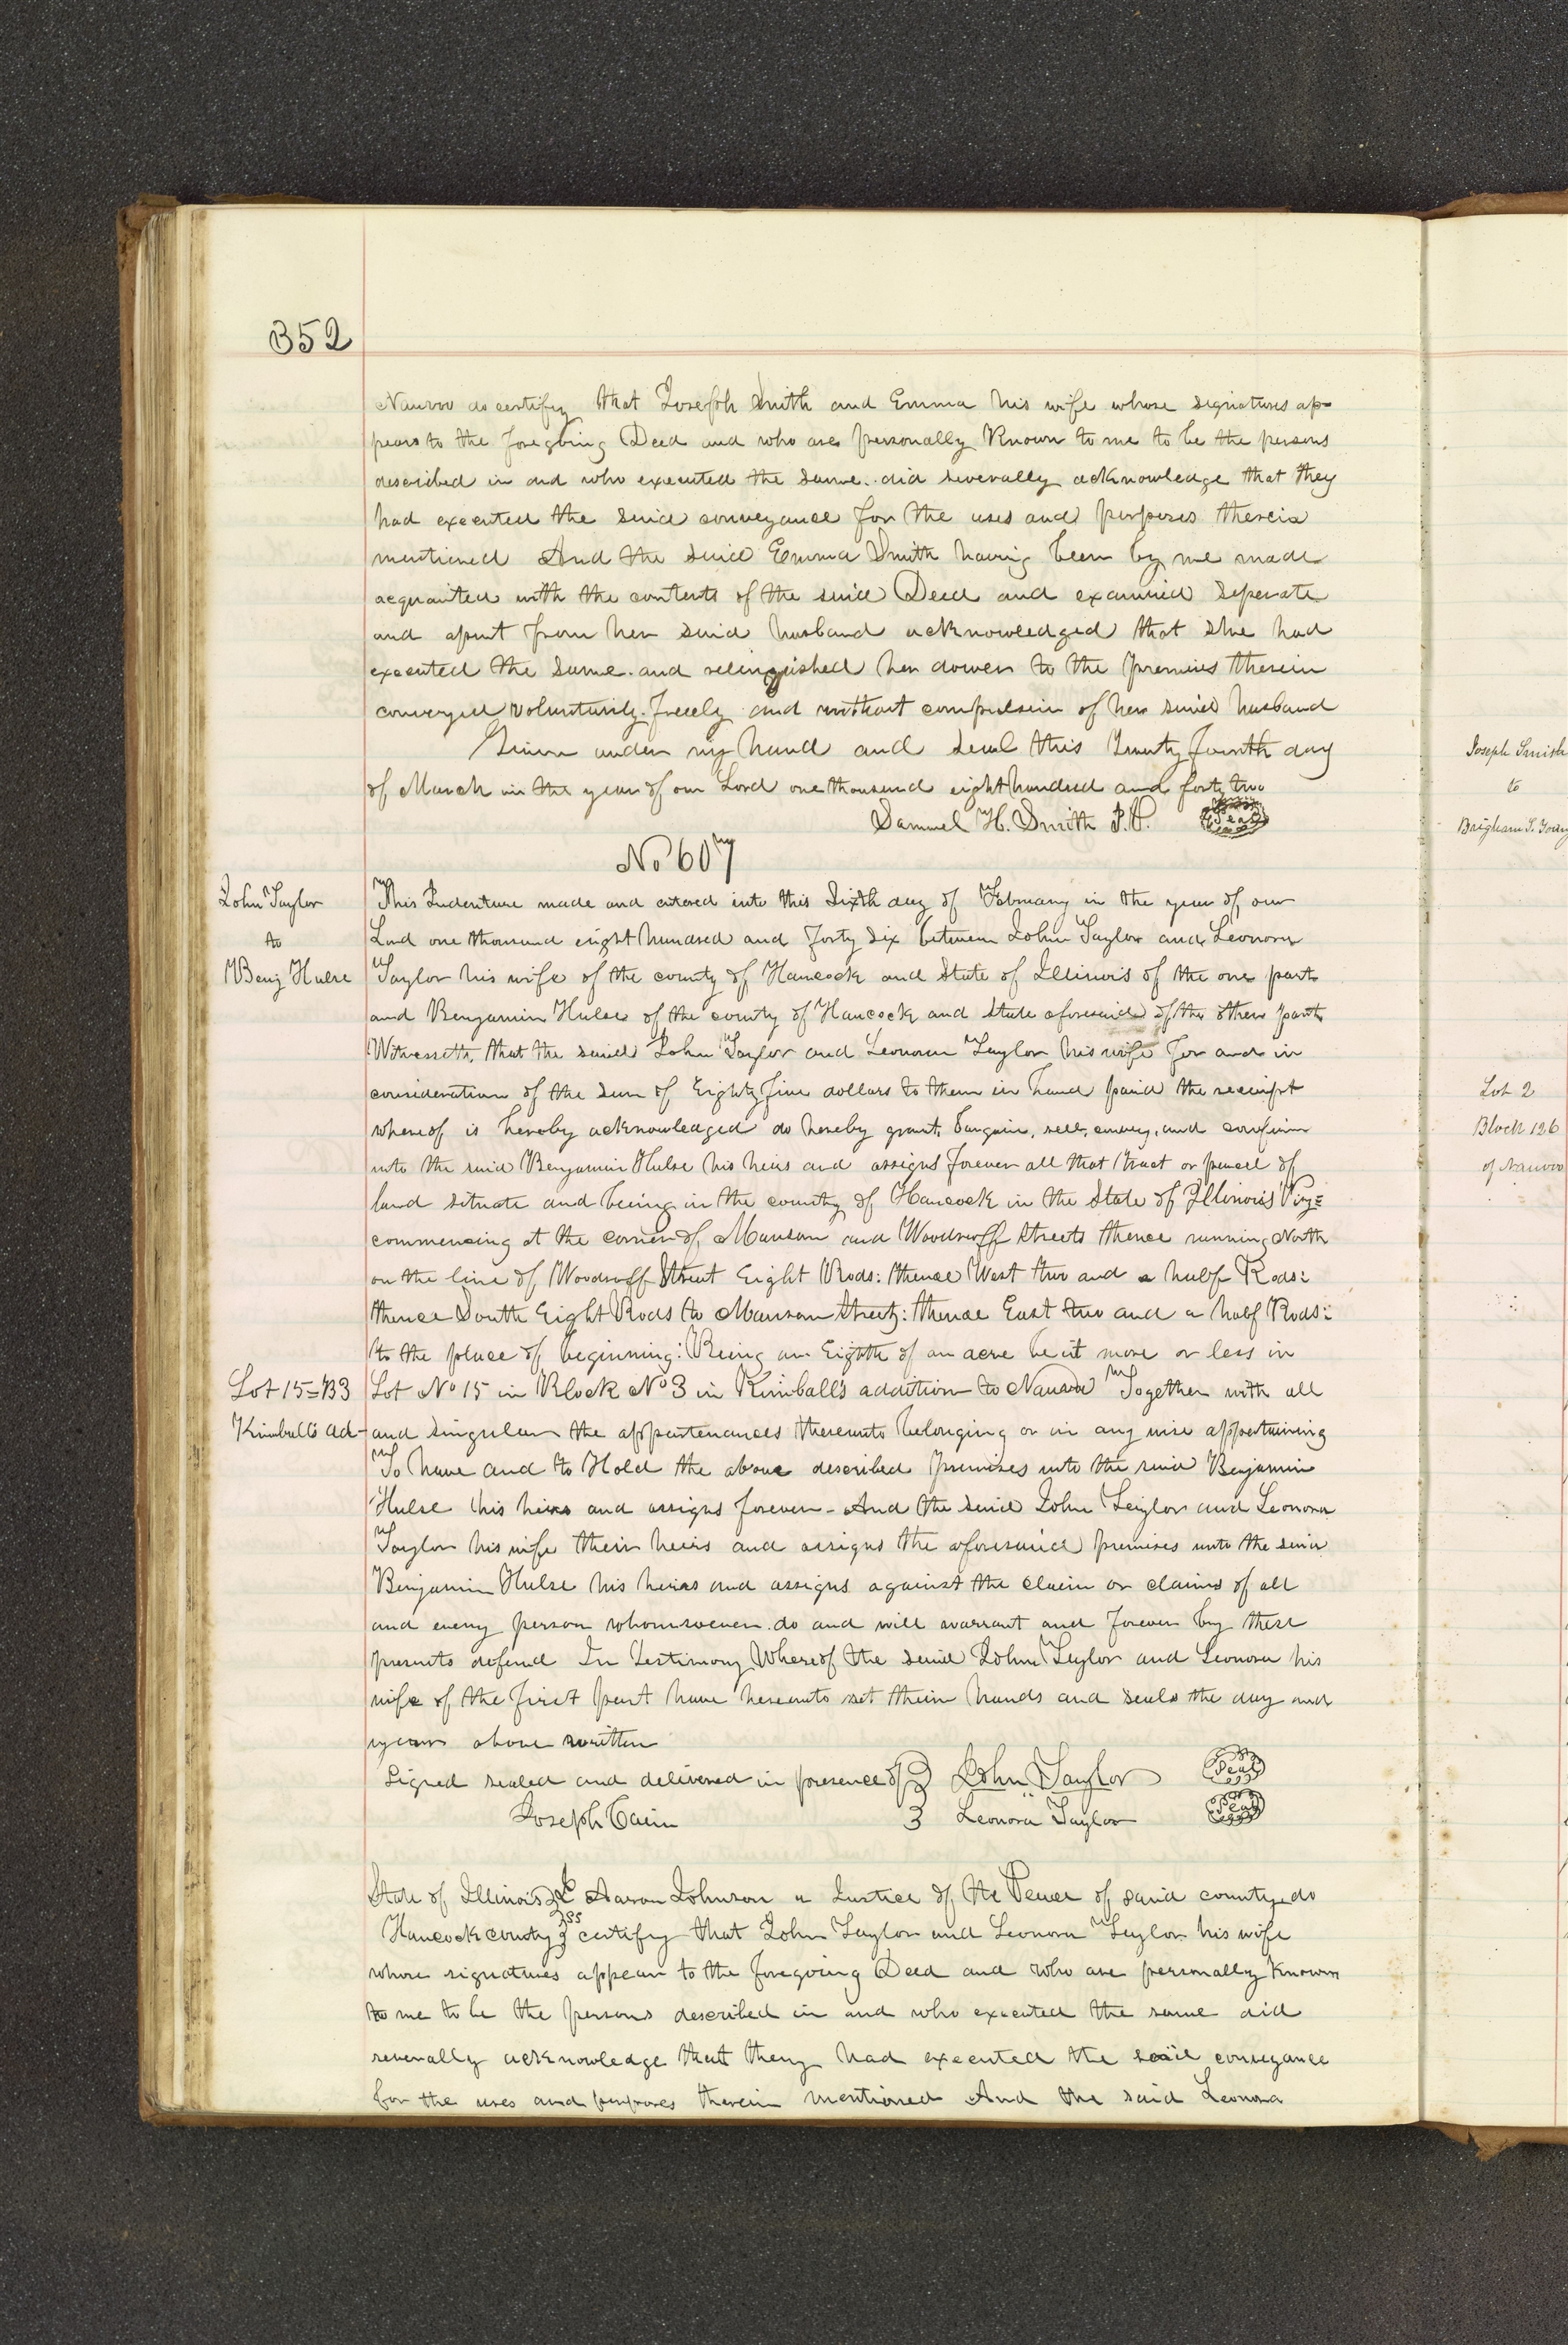 352
Nauvoo do certify that Joseph Smith and Emma his wife whose signatures ap=
pears to the foregoing Deed and who are personally Known to me to be the persons
described in and who executed the same. did severally acknowledge that they
had executed the said conveyance for the uses and purposes therein
mentioned And the said Emma Smith having been by me made
acquainted with the contents of the said Deed and examined seperate
and apart from her said husband acknowledged that she had
executed the same. and relinquished her dower to the premises therein
conveyed voluntarily. freely and without compulsion of her said husband
Given under my hand and seal this Twenty fourth day
of March in the year of our Lord one thousand eight hundred and forty two
Samuel H. Smith J.P. Seal
No 607
John Taylor
to
Benj Hulse
This Indenture made and entered into this Sixth day of February in the year of our
Lord one thousand eight hundred and Forty Six between John Taylor and Leonora
Taylor his wife of the county of Hancock and State of Illinois of the one part
and Benjamin Hulse of the county of Hancock and State aforesaid of the other part
Witnesseth, that the said John Taylor and Leonora Taylor his wife for and in
consideration of the sum of Eighty five dollars to them in hand paid the receipt
whereof is hereby acknowledged do hereby grant, bargain, sell, convey, and confirm
unto the said Benjamin Hulse his heirs and assigns forever all that tract or parcel of
land situate and being in the county of Hancock in the State of Illinois Viz=
commencing at the corner of Munson and Woodruff Streets thence running North
on the line of Woodruff Street Eight Rods: thence West two and a half Rods:
thence South Eight Rods to Munson Street: thence East two and a half Rods:
to the place of beginning: Being an Eighth of an acre be it more or less in
Lot 15=B3
Kimball's ad-
Lot No 15 in Block No 3 in Kimball's addition to Nauvoo Together with all
and singular the appurtenances thereunto belonging or in any wise appertaining
To have and to Hold the above described premises unto the said Benjamin
Hulse his heirs and assigns forever - And the said John Taylor and Leonora
Taylor his wife their heirs and assigns the aforesaid premises unto the said
Benjamin Hulse his heirs and assigns against the claim or claims of all
and every person whomsoever. do and will warrant and forever by these
presents defend In Testimony Whereof the said John Taylor and Leonora his
wife of the first part have hereunto set their hands and seals the day and
year above written
Signed sealed and delivered in presence of John Taylor Seal
Joseph Cain Leonora Taylor Seal
State of Illinois I Aaron Johnson a Justice of the Peace of said county do
Hancock county ss certify that John Taylor and Leonora Taylor his wife
whose signatures appear to the foregoing Deed and who are personally Known
to me to be the persons described in and who executed the same did
severally acknowledge that they had executed the said conveyance
for the uses and purposes therein mentioned And the said Leonora
Joseph Smith
to
Brigham S. Young
Lot 2
Block 126
of Nauvoo